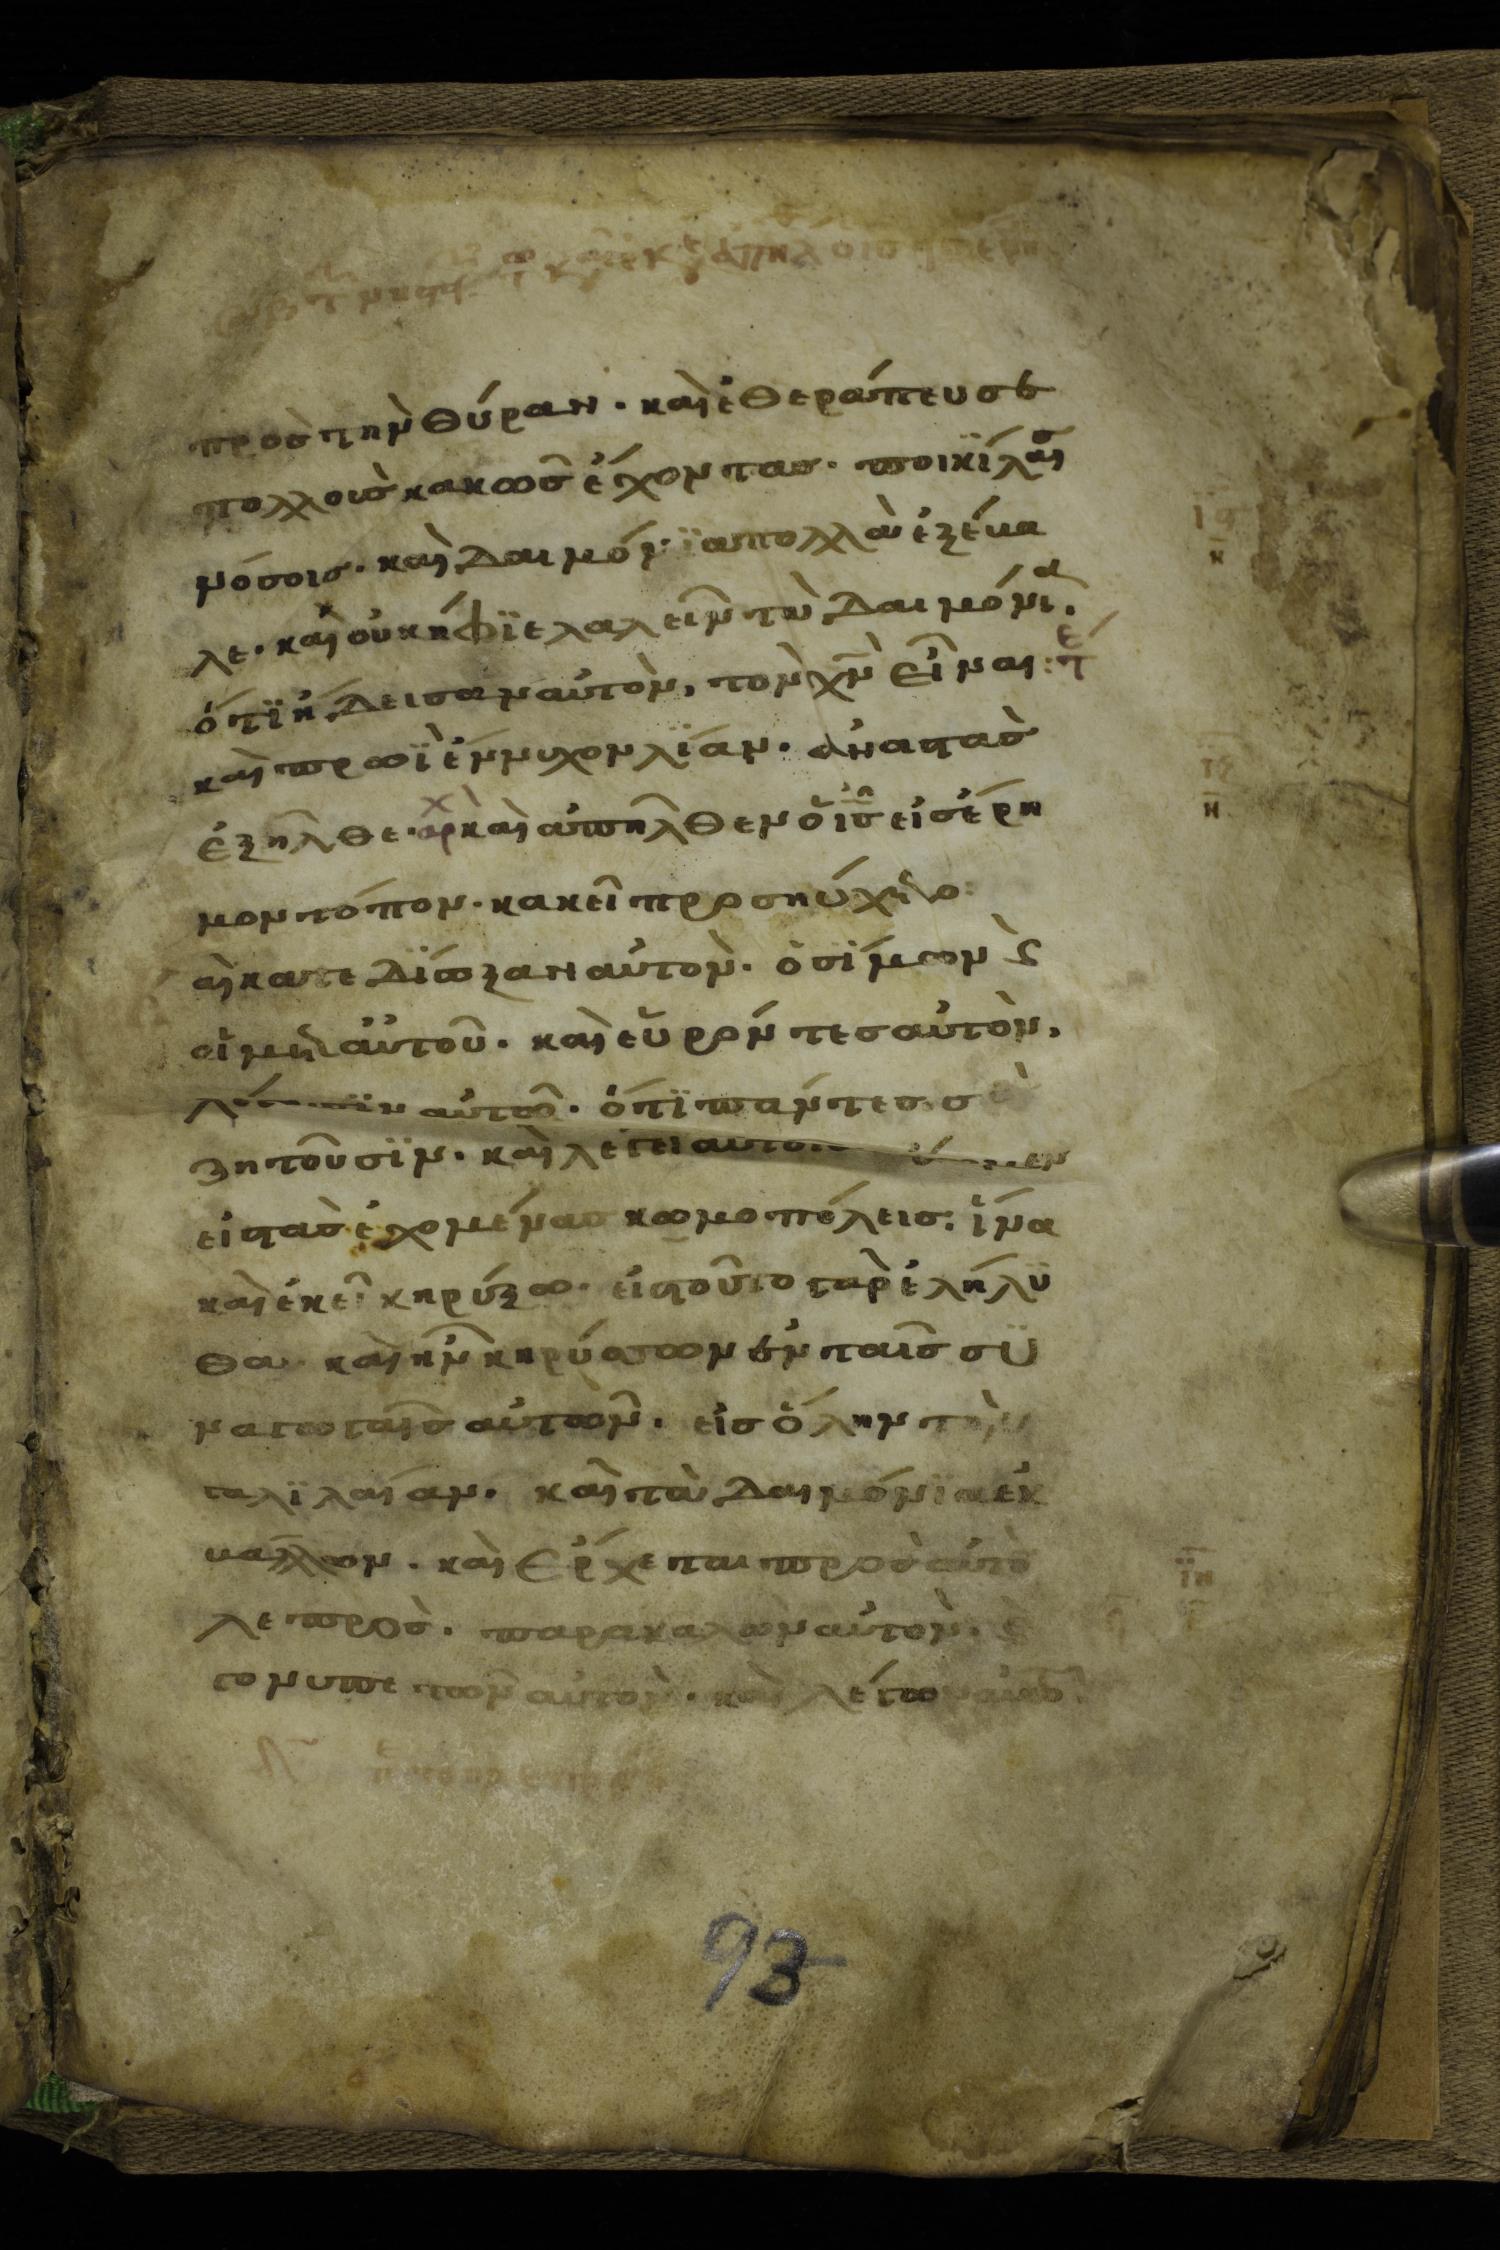 πρὸς τὴν θύραν· καὶ ἐθεράπευσε
πολλοὺς κακῶς ἔχοντας· ποικίλαις
νόσοις· καὶ δαιμόνϊα πολλὰ ἐξέβα
λε· καὶ οὐκ ἤφϊε λαλεῖν τὰ δαιμόνια·
ὅτϊ ἤδεισαν αὐτὸν, τὸν χν εἶναι:
καὶ πρωῒ ἔννυχον λΐαν· ἀναστὰς
ἐξῆλθε· αρχ καὶ ἀπῆλθεν ὁ ις εἰς ἔρη
μον τόπον· κακεῖ προσηύχετο:
καὶ κατεδΐωξαν αὐτὸν· ὁ σΐμων ϛ
οἱ μετ αὐτοῦ· καὶ εὑρόντες αὐτὸν,
λέγουσϊν αὐτῶ· ὅτϊ πάντες σὲ
ζητοῦσϊν· καὶ λέγει αὐτοῖς ἄγωμεν
εἰς τὰς ἐχομένας κωμοπόλεις; ἵνα
καὶ ἐκεῖ κηρύξω· εἰς τοῦτο γὰρ ἐλήλϋ
θα· καὶ ἦν κηρύσσων ἐν ταῖς σϋ
ναγωγαῖς αὐτῶν· εἰς ὅλην τὴν
γαλϊλαίαν· καὶ τὰ δαιμόνϊα ἐκ
βάλλων· καὶ ἔρχεται πρὸς αὐτὸ
λεπρὸς· παρακαλῶν αὐτὸν· ϛ
γονυπετῶν αὐτὸν· καὶ λέγων αὐτῶ
93